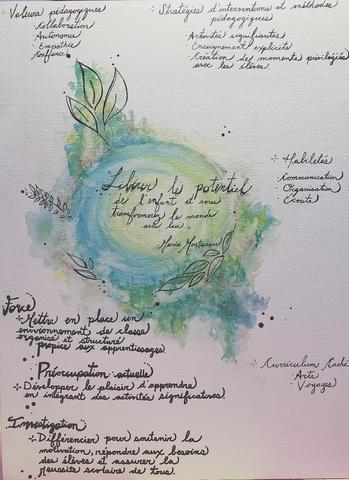 Valeurs pédagogiques
Collaboration
Autonomie
Empathie
Confiance
Stratégies d'interventions et méthodes
pédagogiques
Activités signifiantes
Enseignement explicite
Création de moments privilégiés
avec les élèves.
Libérer le potentiel
de l'enfant et vous
transformerez le monde
avec lui.
Maria Montessori
Habiletés
Communication
Organisation
Écoute
Force
Mettre en place un
environnement de classe
organisé et structuré
propice aux apprentissages
Préoccupation actuelle
Développer le plaisir d'apprendre
en intégrant des activités significatives.
Curriculum caché
Arts
Voyages
Investigation
Différencier pour soutenir la
motivation, répondre aux besoins
des élèves et assurer la
réussite scolaire de tous.